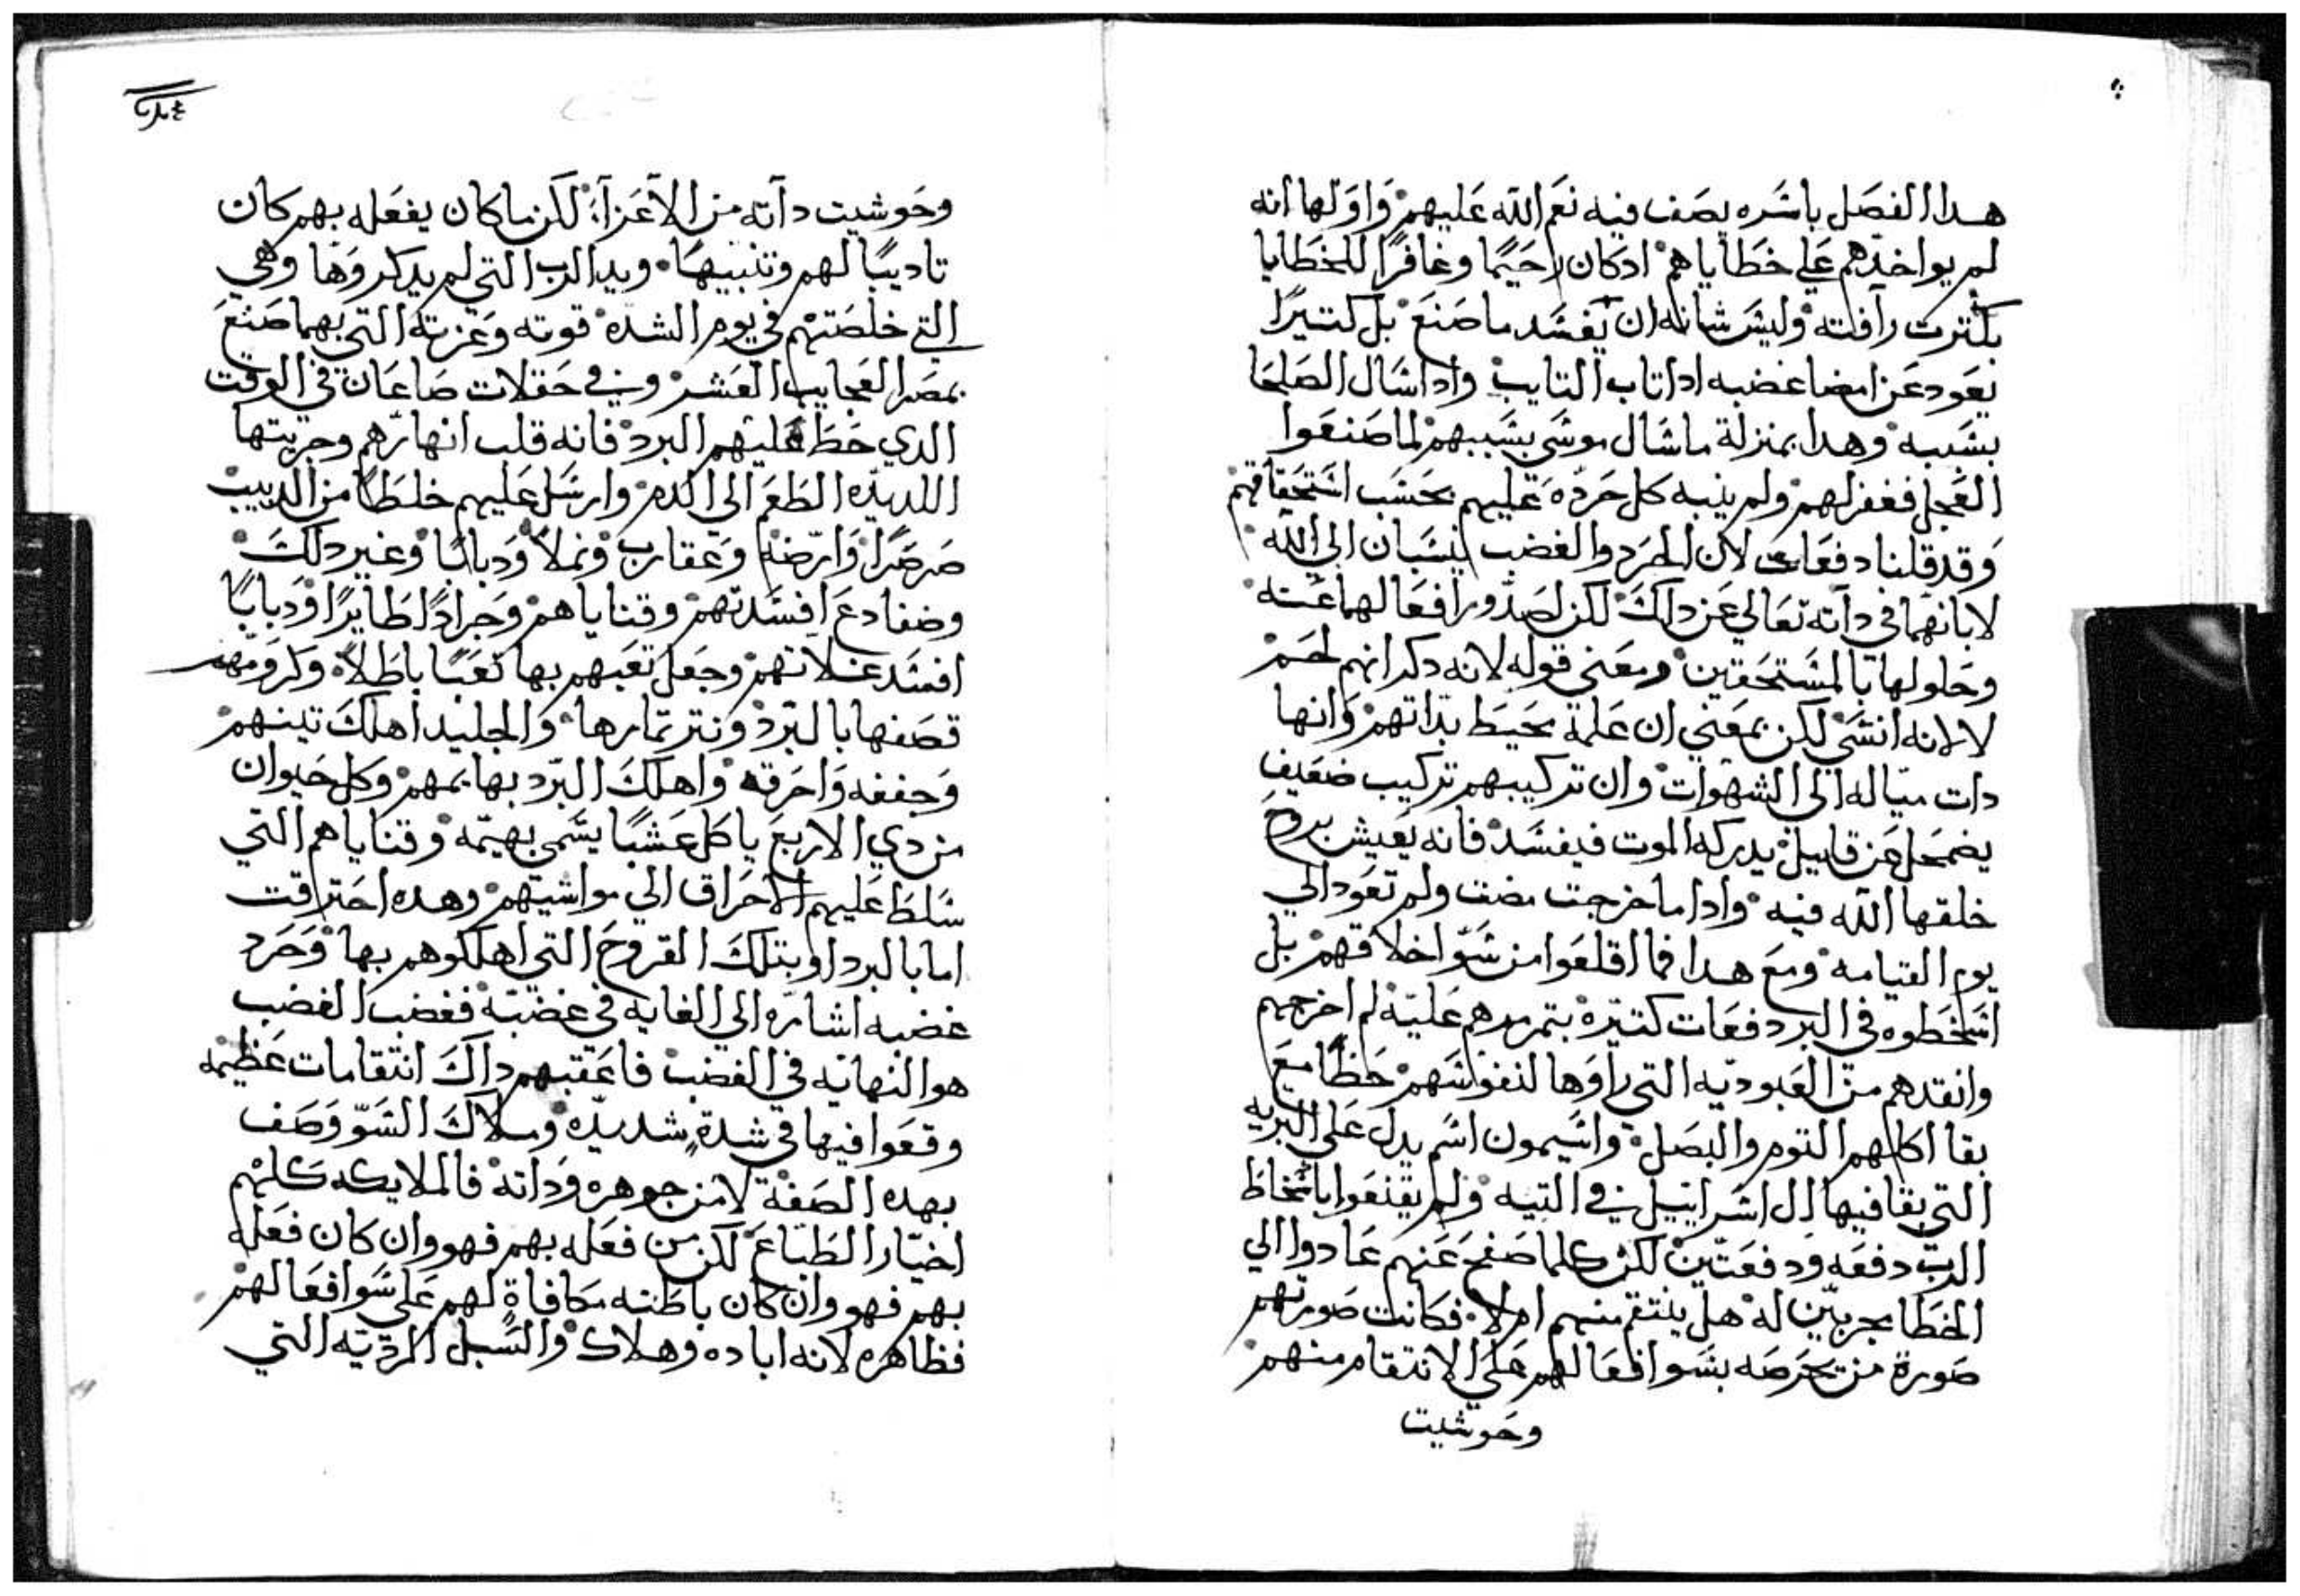 هدا الفصَل باسَره يصَف فيه نعَم الله عَليهم وَاوَلها انه
لم يواخدهم عَلي خطاياهم ادكان رَاحَيمًا وغافرًا للخطايا
بكترت رآفته وليسَ شانه ان يَفسَد ما صَنعَ بل كتيرًا
يعَود عَن امضا غضبه ادا تاب التايب وادا سَال الصَلحَا
بسَببه وهدا بمنزلة ما سَال موسَي بسَببهم لما صَنعَوا
العَجل فغفر لهم ولم ينبه كل حَرده عَليهم بحَسَب استَحَقاقهم
وَقد قلنا دفعَات لان الحَرد والغضب ينسَبان الي الله
لا بانهما في داته تعَالي عَن دالكَ لكن لصَدور افعَالهما عَنه
وحَلولها بالمسَتحَقين ومعَني قوله لانه دكر انهم لحَم
لا لانه انسَي لكن بمعَني ان عَلمه محَيط بداتهم وَانها
دات مياله الي الشهوات وان تركيبهم تركيب ضعَيف
يضمحَل عَن قليل يدركه الموت فيفسَد فانه يعَيش بروحَ
خلقها الله فيه وادا ما خرجت مضت ولم تعَود الي
يوم القيامه ومعَ هدا فما اقلعَوا من سَوّ اخلاقهم بل
اسَخطوه في البر دفعَات كتيره بتمردهم عَليه لم اخرجهم
وانقدهم من العَبوديه التي راوَها لنفوسَهم حَظًا معَ
بقا اكلهم التوم والبصَل واسَيمون اسَم يدل عَلي البريه
التي بقا فيها ال اسَراييل في التيه ولم يقنعَوا باسَخاط
الرب دفعَه ودفعَتين لكن كلما صَفحَ عَنهم عَادوا الي
الخطا مجربين له هل ينتقم منهم ام لا فكانت صَورتهم
صَورة من يحَرصَه بسَوا افعَالهم عَلي الانتقام منهم
وحَوشيت
وحَوشيت داته من الاعَزاء لكن ما كان يفعَله بهم كان
تاديبًا لهم وتنبيهًا ويد الرب التي لم يدكروَها وهي
التي خلصَتهم في يوم الشده قوته وَعَزته التي بهما صَنعَ
بمصَر العَجايب العَشر وفي حَقلات صَاعَان في الوقت
الدي حَط عَليهم البرد فانه قلب انهارهم وجريتها
اللديده الطَعَم الي الدم وارسَل عَليهم خلطًا من الدبيب
صَرصَرًا وَارضَه وَعَقارب ونملاً وَدبابًا وغير دلكَ
وضفادعَ افسَدتهم وقناياهم وَجرادًا طايرًا وَدبابًا
افسَد غلاتهم وجعَل تعَبهم بها تعَبًا باطلاً وكرومهم
قصَفها بالبَرد ونتر تمارها والجليد اهلكَ تينهم
وَجففه وَاحَرقه واهلكَ البرد بهايمهم وكل حَيوان
من دي الاربعَ ياكل عَشبًا يسَمي بهيمه وقناياهم التي
سَلط عَليهم الاحَراق الي مواشيهم وهده احَتراقت
اما بالبرد او بتلكَ القروحَ التي اهلكوهم بها وَحَرد
غضبه اشاره الي الغايه في غضبه فغضب الغضب
هو النهايه في الغضب فاعَقبهم داكَ انتقامات عَظيمه
وقعَوا فيها في شدة شديده وملاكَ السَوّ وَصَف
بهده الصَفه لا من جوهره وَداته فالملايكه كلهم
اخيار الطَباعَ لكن من فعَله بهم فهو وان كان فعَله
بهم فهو وان كان باطَنه مكافاة لهم عَلي سَوا افعَالهم
فظاهره لانه اباده وهلاك والسَبل الرديه التي